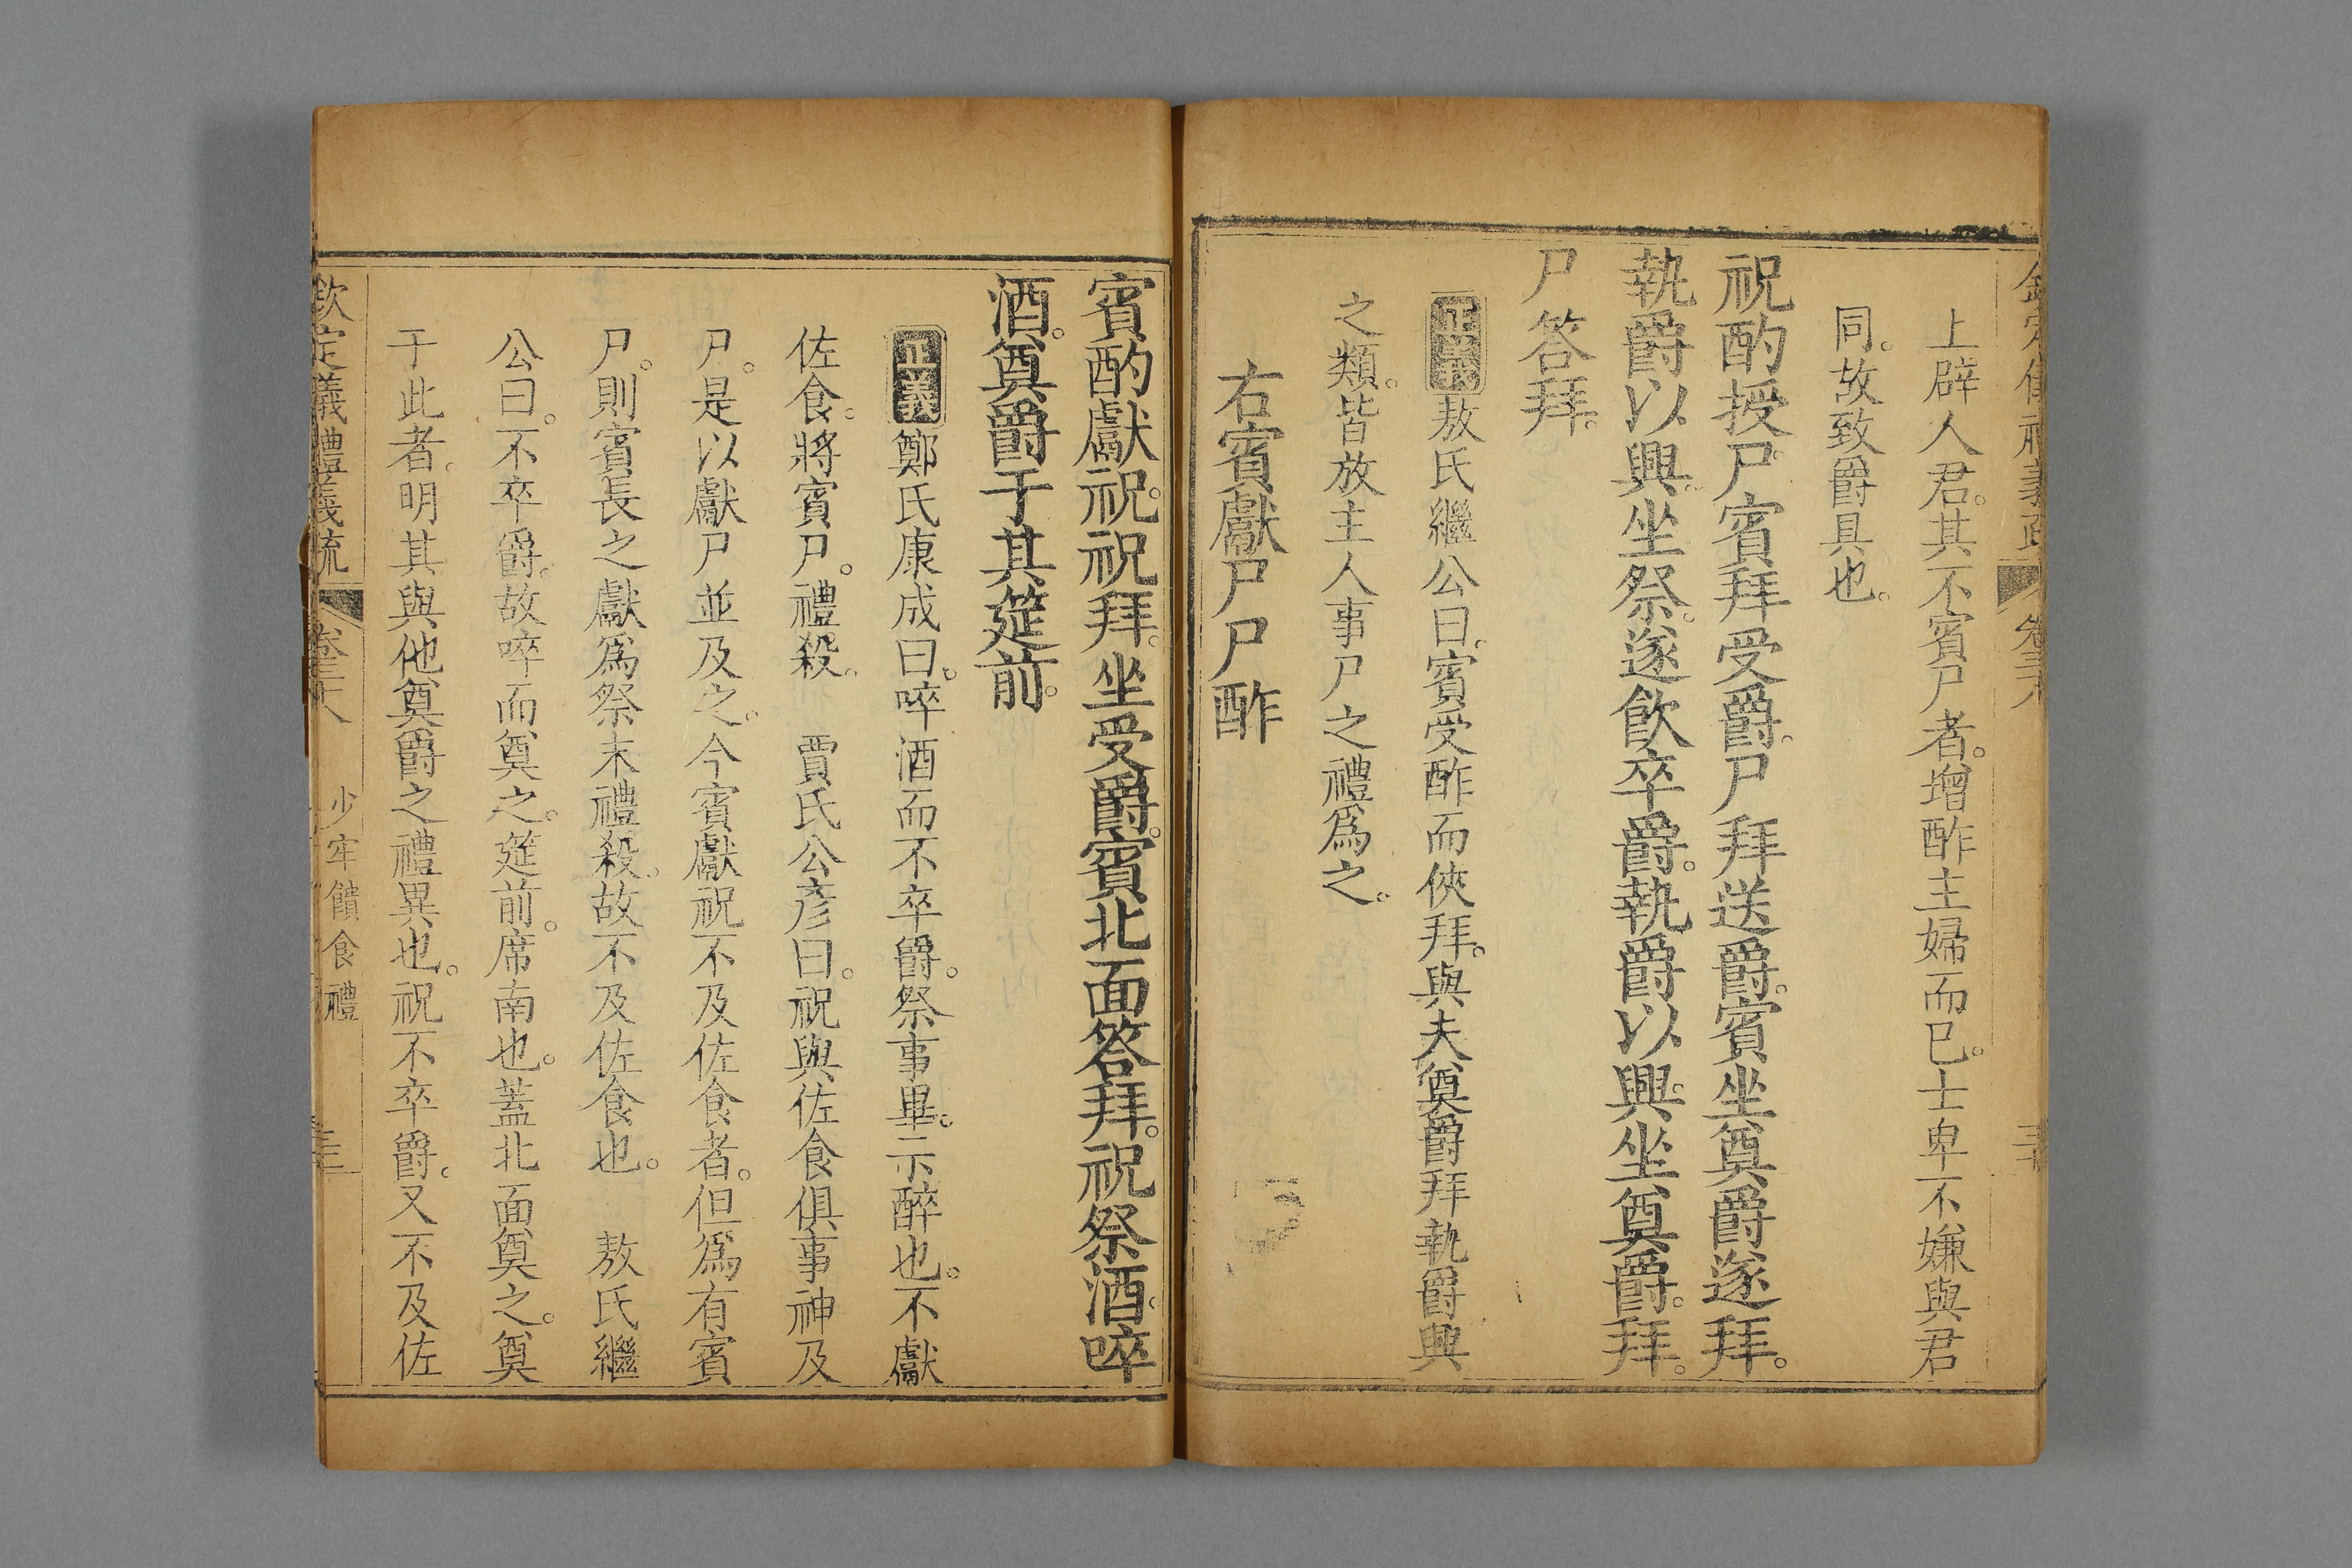 上辟人君。其不賓尸者。增酢主婦而已。士卑不嫌與君
同。故致爵具也。
祝酌授尸。賓拜受爵。尸拜送爵。賓坐奠爵遂拜。
執爵以興。坐祭。遂飲卒爵。執爵以興。坐奠爵。拜。
尸答拜。
正義敖氏繼公曰。賓受酢而俠拜。與夫奠爵拜執爵興
之類。皆放主人事尸之禮爲之。
右賓獻尸尸酢
賓酌獻祝。祝拜。坐受爵。賓北面答拜。祝祭酒。啐
酒。奠爵于其筵前。
正義鄭氏康成曰。啐酒而不卒爵。祭事畢。示醉也。不獻
佐食。將賓尸。禮殺。 賈氏公彥曰。祝與佐食俱事神及
尸。是以獻尸並及之。今賓獻祝不及佐食者。但爲有賓
尸。則賓長之獻爲祭末禮殺。故不及佐食也。 敖氏繼
公曰。不卒爵。故啐而奠之。筵前。席南也。蓋北面奠之。奠
于此者。明其與他奠爵之禮異也。祝不卒爵。又不及佐
欽定儀禮義疏 卷三十八 少牢饋食禮